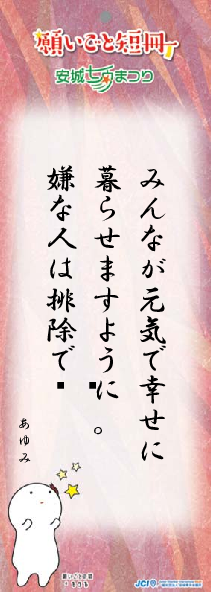 願いごと短冊
安城七夕まつり
みんなが元気で幸せに
暮らせますように。
嫌な人は排除で
あゆみ
JCI